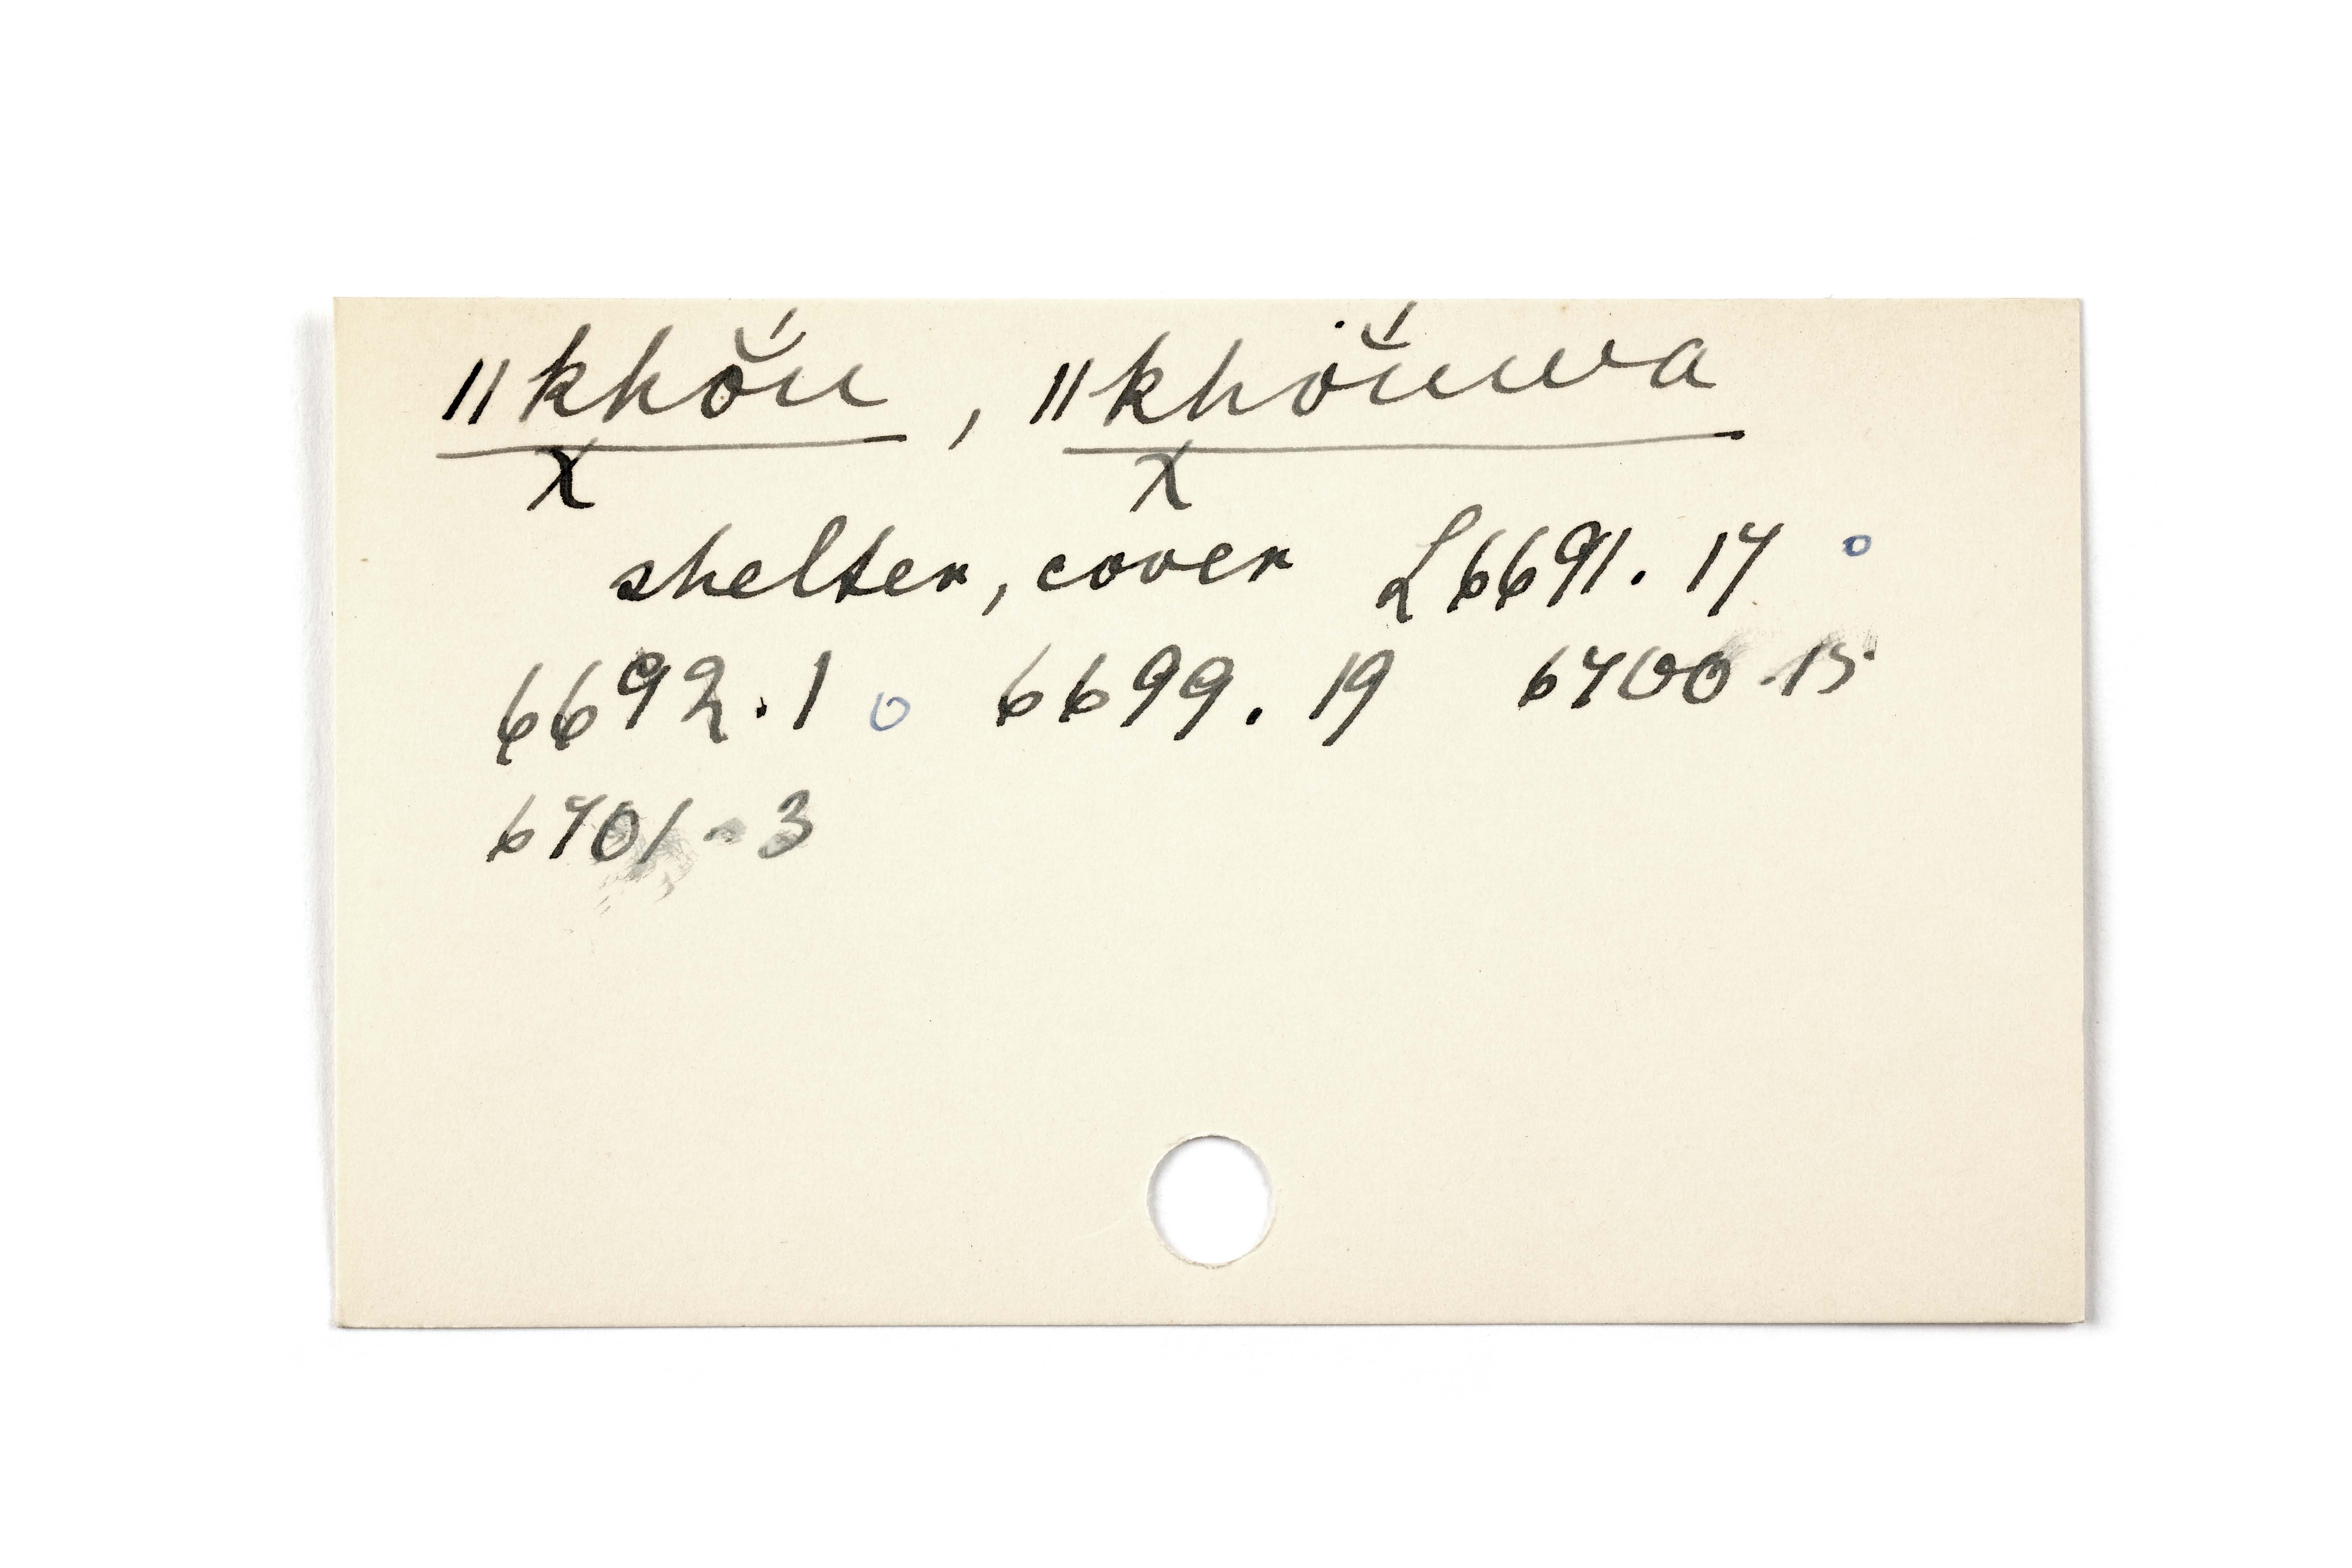 ǁkhŏ́u, ǁkhŏ́uwa
χ χ
shelter, cover L6691.17 o
6692.1 o 6699.19 6700-15
6701-3